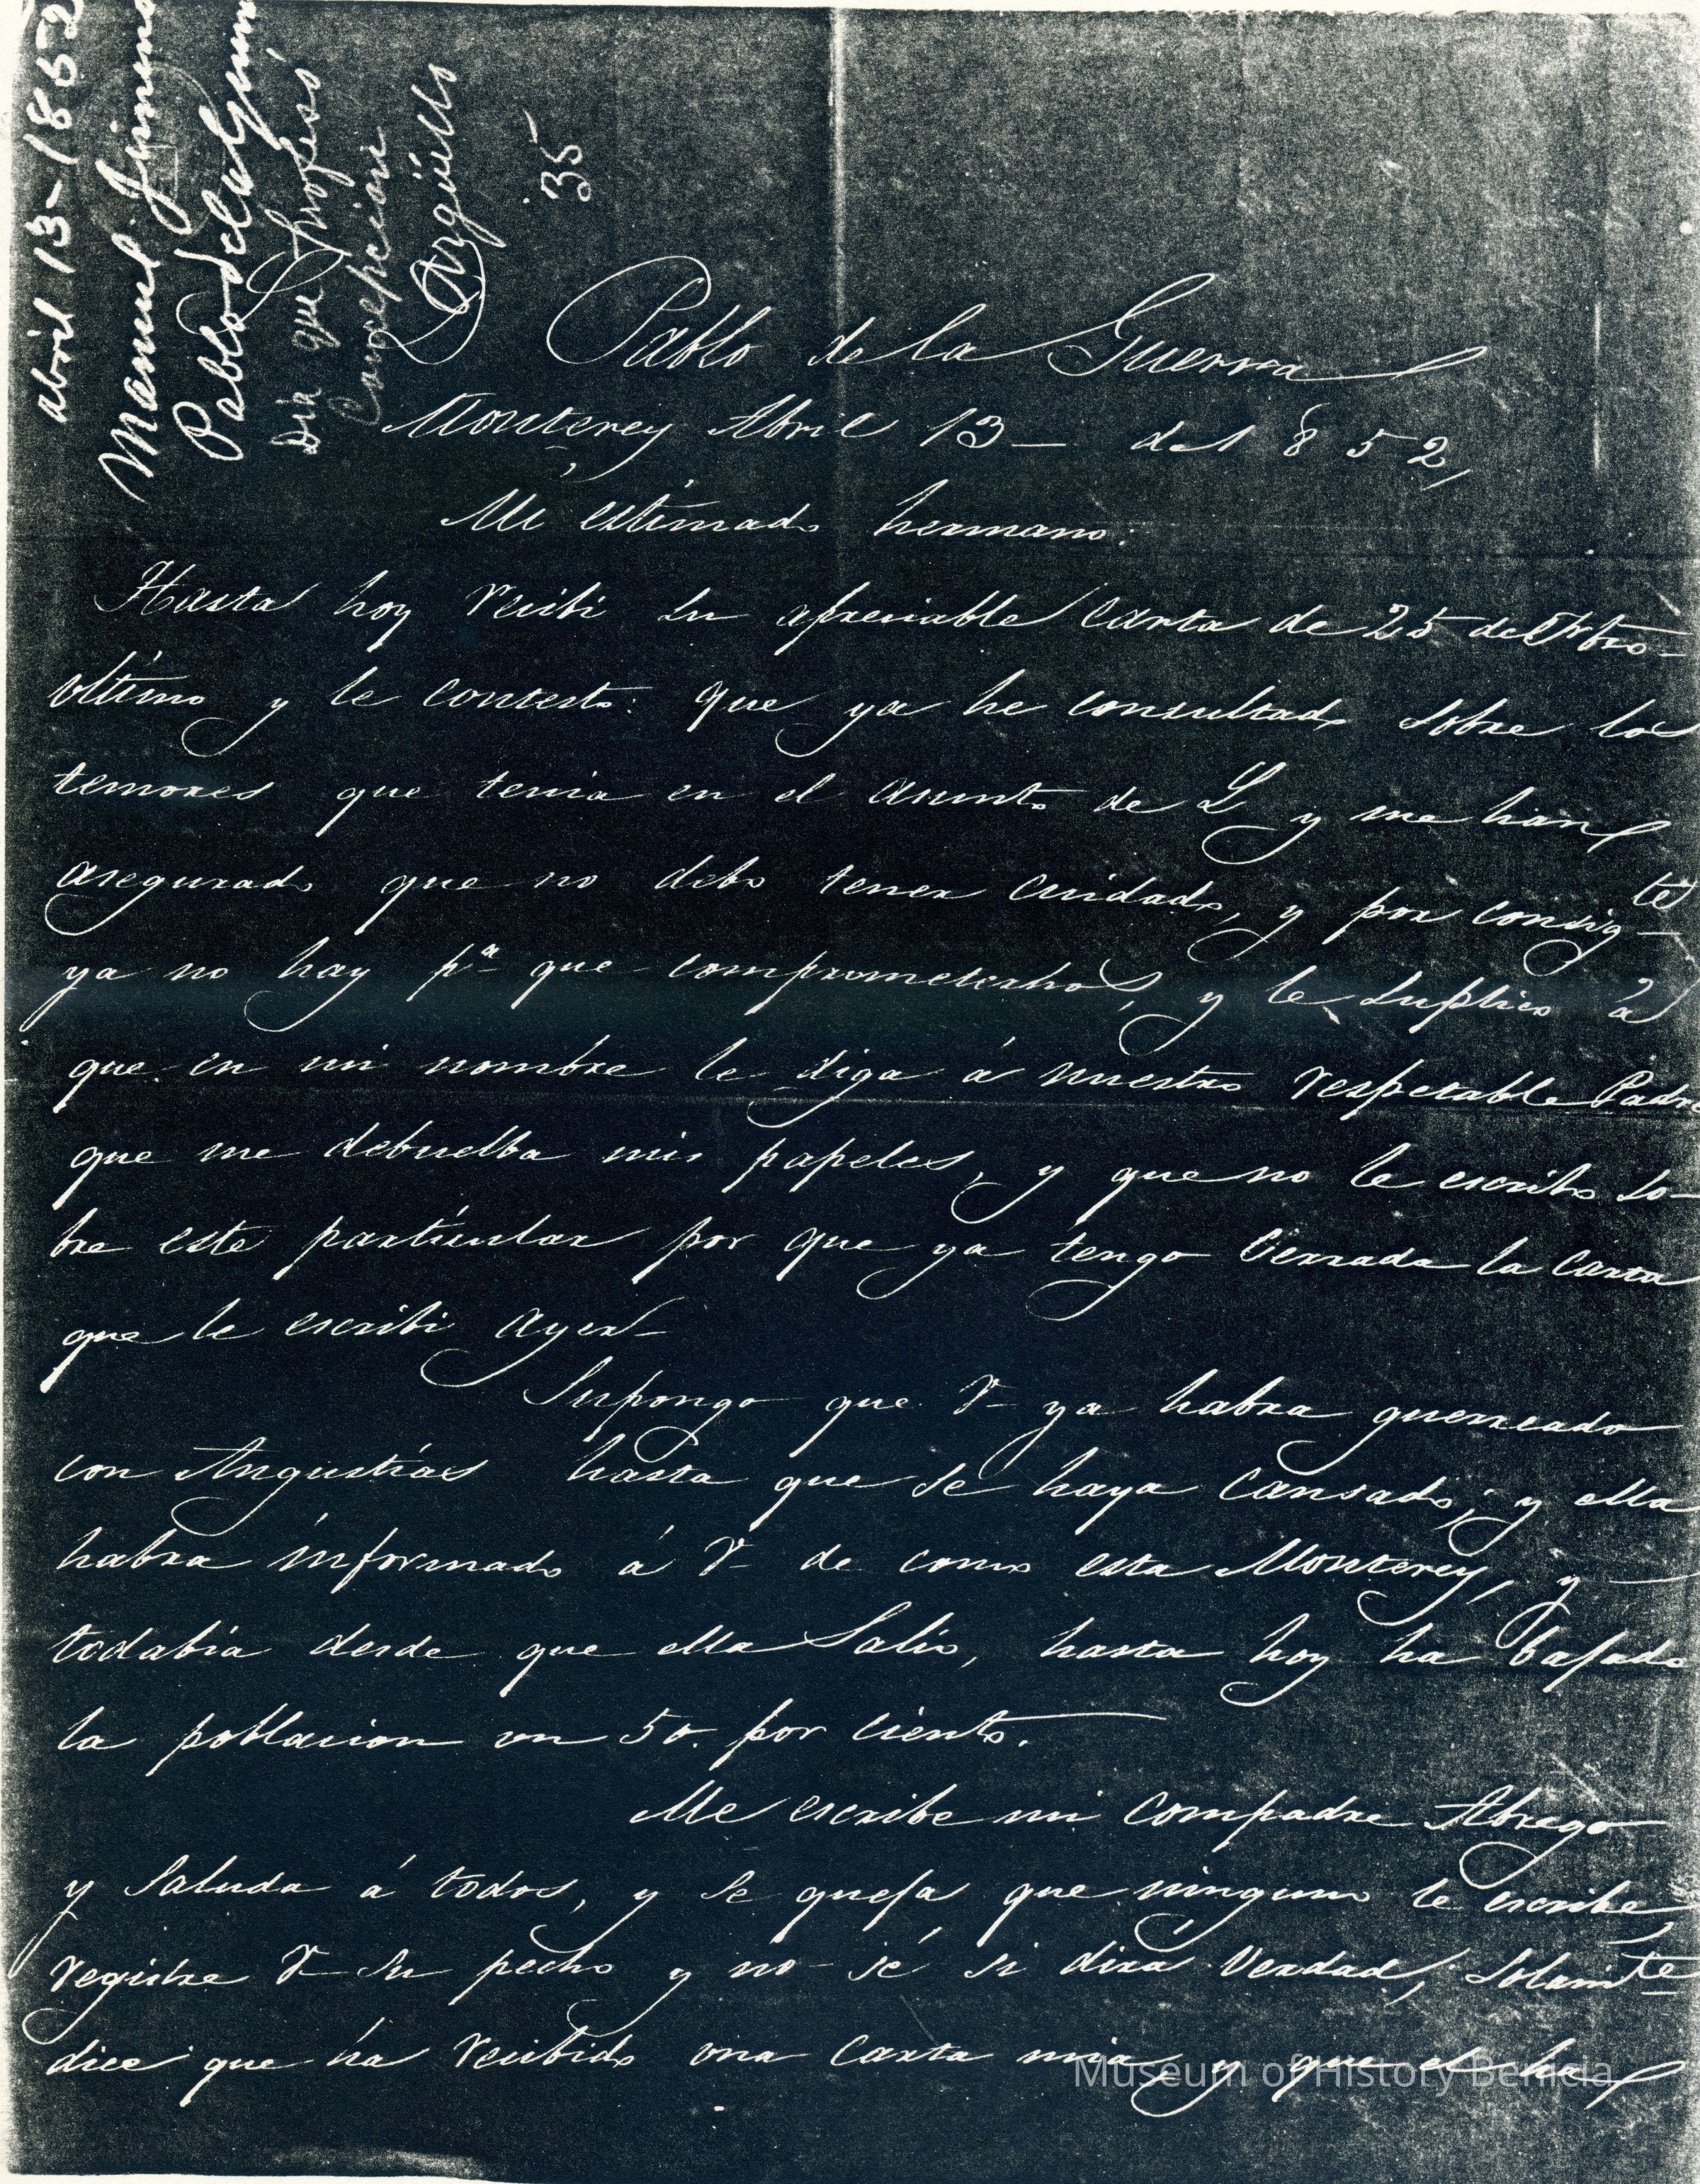 abril 13-1852
Manuel Jimeno
Pablo de la Guerra
Dia que profesó
Concepcion
Argüello
35
Pablo de la Guerra
Monterey Abril 13— de 1852,
Mi estimado hermano:
Hasta hoy recibi su apreciable carta de 25 de
último y le contesto: que ya he consultado sobre los
temores que tenia en el asunto de L y me han
asegurado que no debo tener cuidado, y por consigte
ya no hay pa que comprometerlos, y le suplico á
que en mi nombre le diga á nuestro respetable Padre
que me debuelba mis papeles, y que no le escribo so-
bre este particular por que ya tengo cerrada la carta
que le escribi ayer—
Supongo que V— ya habra guerreado
con Angustias hasta que se haya cansado; y ella
habra informado á V— de como esta Monterey, y —
todabia desde que ella salio, hasta hoy ha bajado
la poblacion un 50. por ciento.
Me escribe mi compadre Abrego
y saluda á todos, y se queja que ninguno le escribe,
registre V— su pecho y no sé si dirá verdad, solamte
dice que ha recibido una carta mia y que el ha
Museum of History Benicia